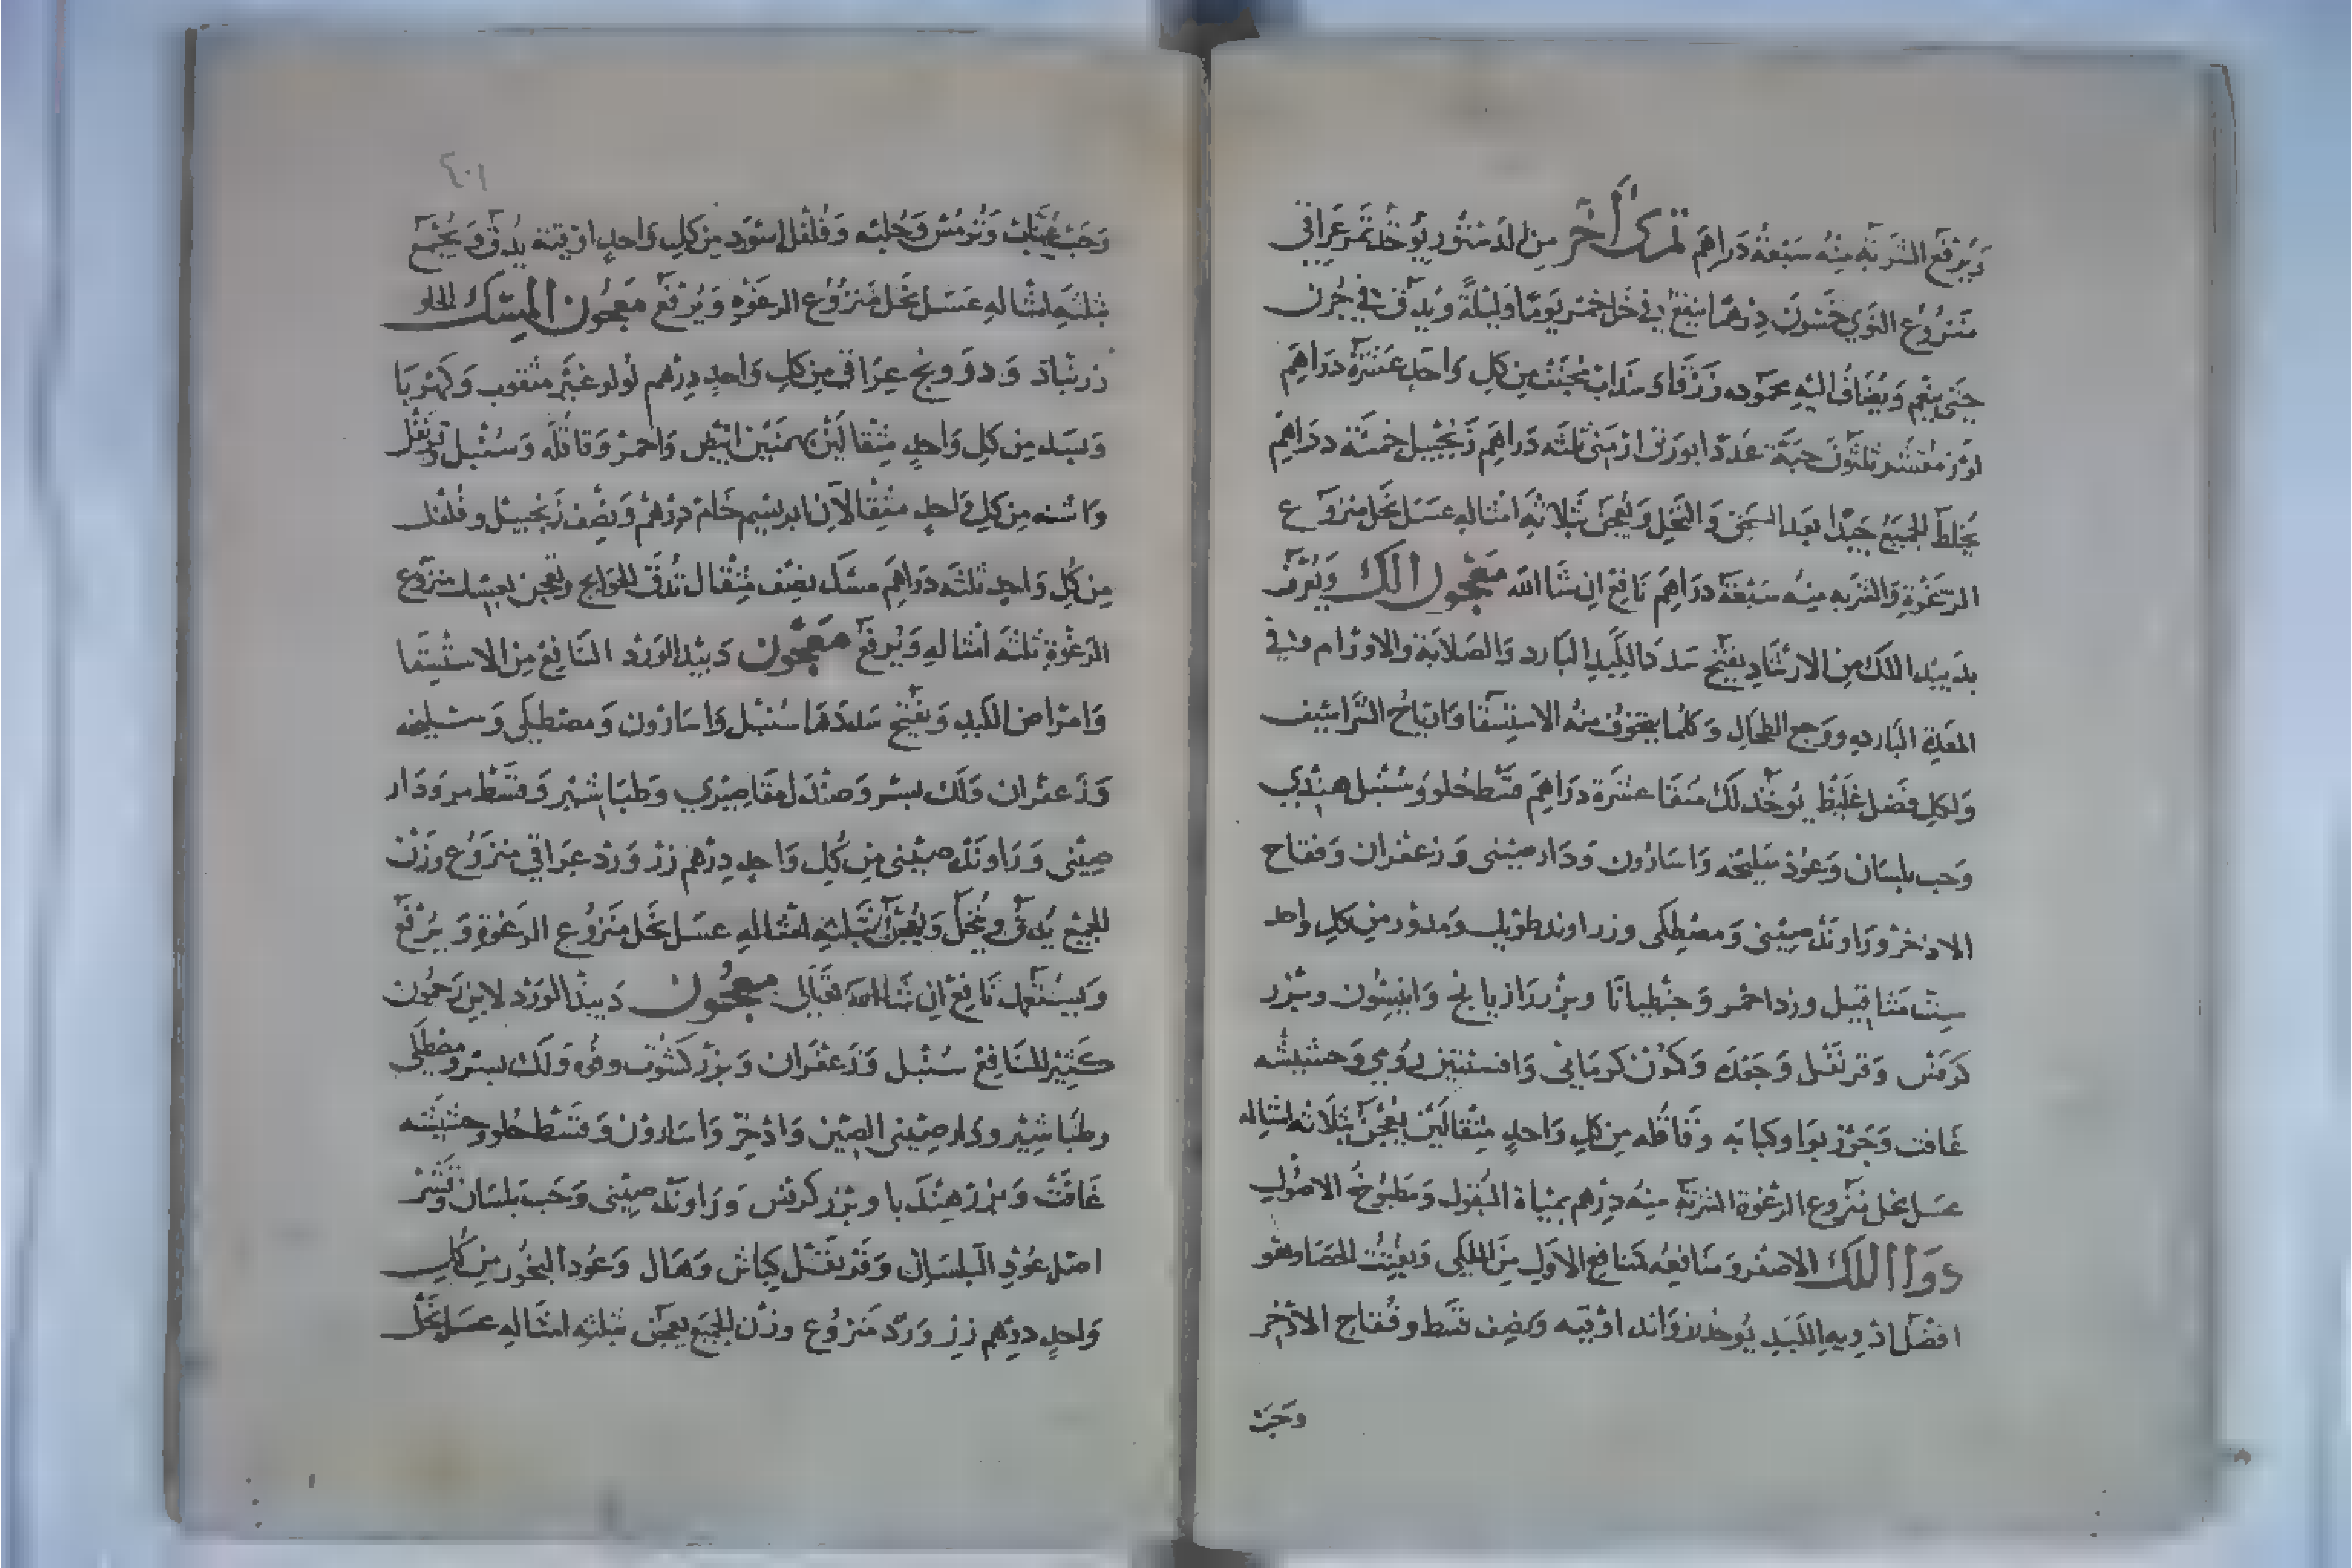 وَيُرْفَع الشربَه مِنْهُ سَبْعَةُ دَرَاهِم تمرى آخَر مِن الدستور يُوخذ تمر عِرَاقى
مَنزُوع النَوي خمسُونَ دِرْهمًا ينقع فى خَل خمر يَومًا وَليْلةً وَيدق فى جُرن
حَتى ينعم وَيُضَافُ اليْهِ محموده زَرْقا وَسَدَاب مُجفف مِن كلِ وَاحدٍ عَشرَة دَرَاهِم
لوز مقشر ثلثون حَبّة عَددًا بورَق ارمَنى ثلثه دَرَاهِم زَنجبيل خمسَة دَرَاهِم
يخلط الجميع جَيّدًا بَعد السَحق وَالنخل وَيُعجن بثلاثةِ امثالهِ عسَل نحل منزوع
الرغْوَةِ وَالشربه مِنْه سَبْعَة دَرَاهِم نَافِع اِن شَا الله مَعْجُون اللك وَيُعْرَف
بدبيد اللك مِن الارشَادِ يفتح سُدد الكَبِدِ البَارد وَالصَلابَة والاورَام وفى
المعدَةِ البَاردهِ ووَجع الطحَالِ وَكلما يتخوف منْه الاستسقَا وَانتفاخ الشرَاسيف
وَلكلِ فضل غليظ يُوخذ لك منقَا عشرَة دَرَاهِم قسْط حُلو وَسُنبل هِندي
وَحب بلسَان وَعُود سَليخه وَاسَارُون وَدَار صِينى وَزعفران وَفقاح
الادخر وَرَاوند صِينى وَمصْطكى وزراوند طويل ومدور مِن كلِ واحد
ستّ مثَاقيل ورد احمر وَجنطيانا وبزر رَازيانج وَانيسُون وبزر
كرَفس وَقرنفل وَجَعده وَكمون كرمَانى وَافسنتين رُومي وَحشيشه
غَافت وَجَوْز بوا وكبابه وقَاقله مِن كلِ وَاحدٍ مِثقالين يُعجن بثلاثه امثاله
عسَل نحل منزوع الرغوة الشربَه مِنهُ دِرْهم بميَاة البقول وَمطبُوخ الاصُول
دَوَآ اللك الاصفر وَمنَافعه كمنافع الاول مِن اللكى وَيُفتت الحصَا وهو
افضل ادويهِ الكَبِدِ يُوخذ رَاوند اوقيه وَنصِف قسْط وفقاح الادخر
وحَب
٢٠١
وَحَب بلسان وَتُرمُس وَحُلبَه وَفُلفُل اسوَد مِن كلِ وَاحدٍ اوقيَة يُدَق وَيُجْمع
بثلثةِ امثالهِ عَسَل نحل مَنزُوع الرغوَةِ وَيُرْفع مَعْجُون المِسْك الحلو
زرنبَاد وَدَرونج عِرَاقى مِن كلِ وَاحدٍ دِرْهم لولو غَير مثقوب وَكهربَا
وَبسد مِن كلِ وَاحدٍ مِثقالين بهمَنين ابيَض وَاحمر وَقاقله وَسُنبل وَقرنفل
وَاشنه مِن كلِ وَاحدٍ مِثقالاَن ابريسيم خَام درْهم وَنصِف زَنجبيل وفُلفل
مِن كلِ وَاحدٍ ثلثه دَرَاهم مسْك نصِف مِثقال تُدق الحَوَايج وتعجن بعسَل منزوع
الرغوَةِ ثلثه امثالهِ وَيُرفع مَعْجُون دَبيد الوَرْد النَافِع مِن الاستسقَا
وَامرَاض الكَبدِ وَيفتح سددَهَا سُنبل وَاسَارُون وَمصْطكى وَسليخه
وَزعفران وَلك بسر وَصَندل مقَاصِيري وَطبَاشير وَقسْط مر وَدَار
صِينى وَرَاوند صِينى مِن كُلِ وَاحدٍ دِرهم زر وَرد عِرَاقى منزوع وزن
الجميع يُدق وَيُنخل وَيُعجن بثلثهِ امثالهِ عسَل نحل مَنزُوع الرغوَةِ وَيُرْفع
وَيُستَعمل نَافِع اِن شَا الله تَعَالَى مَعْجُون دَبيد الوَرْد لابن رَحمُون
كَثير المنَافِع سُنبل وَزعفران وَبزر كشُوث وفوه وَلك بسر ومصْطكى
وطبَاشير ودار صِينى الصِين وَادخر وَاسَارُون وَقسْط حُلو وحشيشه
غَافت وَبزر هِندَبا وبزر كرفس وَرَاوند صِينى وَحَب بَلسَان وَقشر
اصل عُودِ البلسَان وَقرنفل كِبَاش وَهَال وَعُود البخُور مِن كلِ
وَاحدٍ درهم زِر وَرد مَنزُوع وزن الجميع يعجن بثلثهِ امثالهِ عسَل نحل